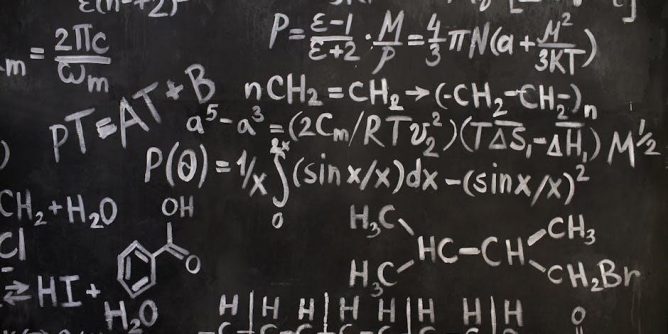 P = ε-1/ε+2 · M/ρ = 4/3 πN(a + M²/3KT)
m = 2πc/ωm
PT = AT + B
nCH₂ = CH₂ → (-CH₂-CH₂-)n
a⁵ - a³ = (2Cm/RTυ₂²)(TΔS₁-ΔH₁) M^½
P(θ) = 1/x ∫₀²ˣ (sin x/x)dx - (sinx/x)²
CH₂ + H₂O
OH
O
Cl
H₃C
HC-CH
CH₃
H₃C
CH₂Br
⇄ HI +
H₂O
H | H H | H H | H H | H O